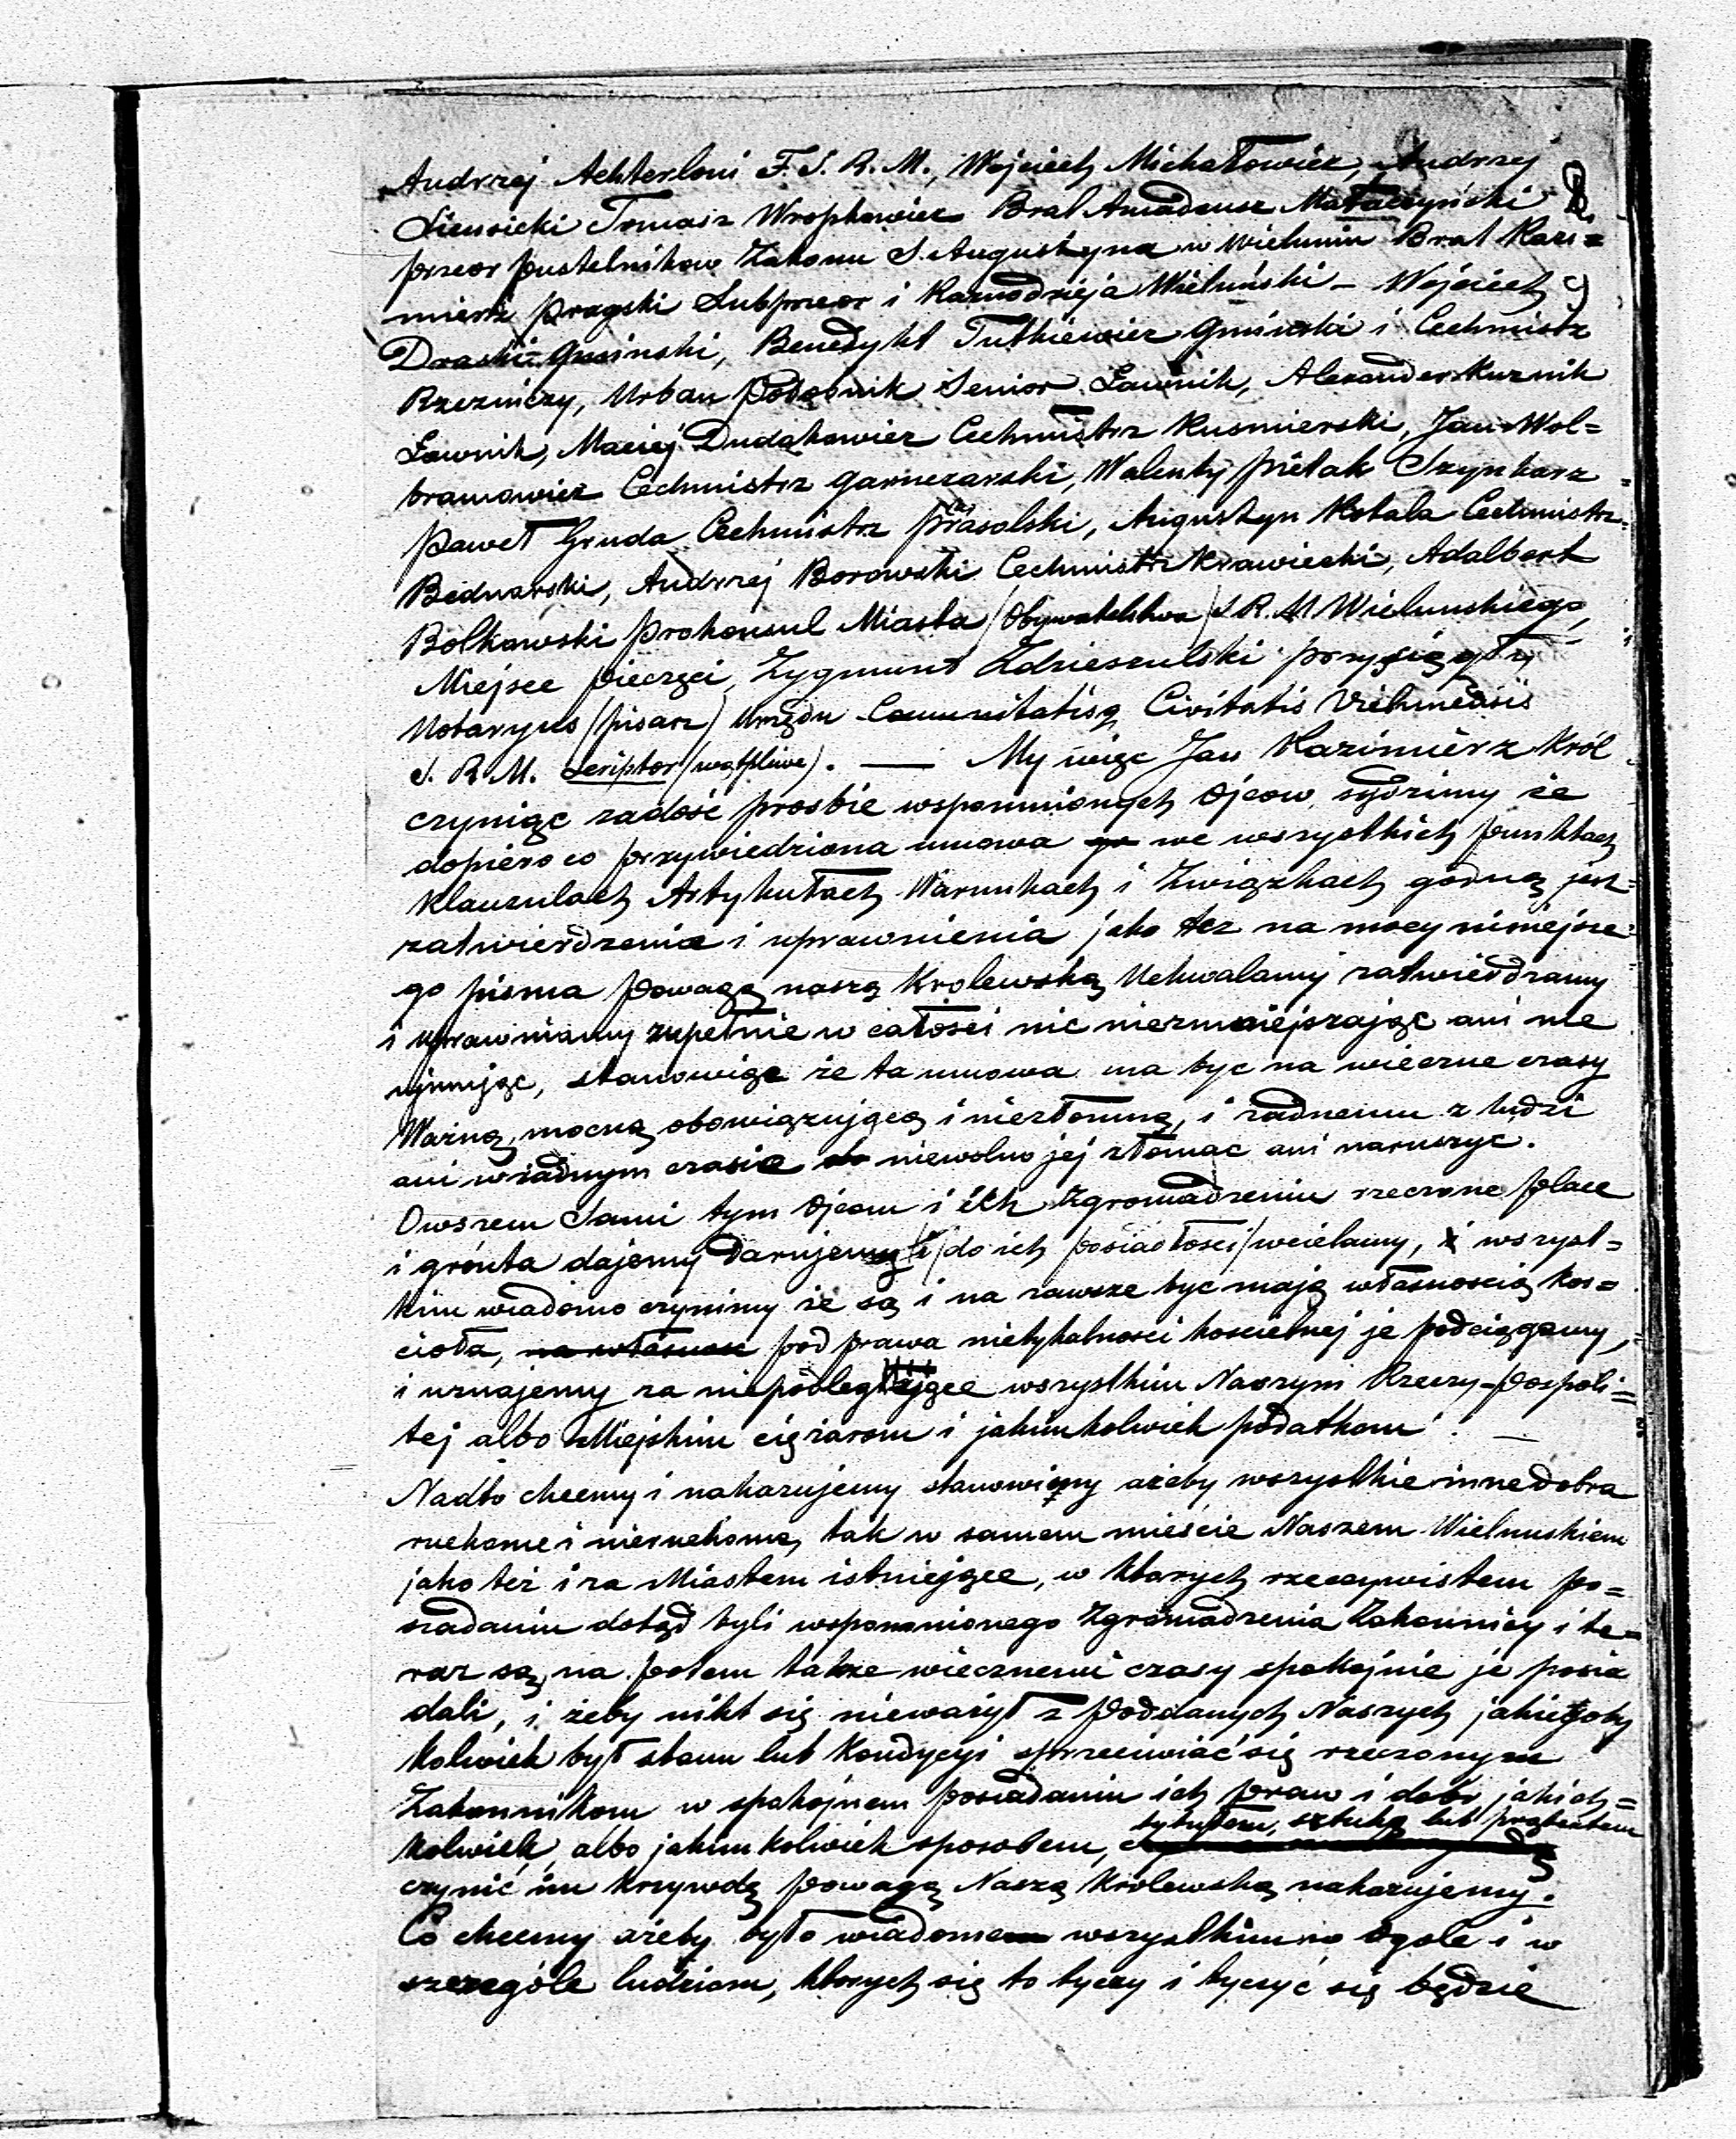 Andrzej Achterloni F. S. R. M., Wojciech Michałowicz, Andrzej
Siewicki Tomasz Wropkowicz Brat Amadeusz Mataczyński
przeor pustelnikow Zakonu S. Augustyna w Wieluniu Brat Kazi=
mierz Pragski Subprzeor i Kaznodzieja Wieluński – Wojciech
Draski Gminski, Benedykt Tutkiewicz Gminski i Cechmistrz
Rzezniczy, Urban Senior Ławnik, Alexander Kuznik
Ławnik, Maciej Dudakowicz Cechmistrz Kusmierski, Jan Wol=
bramowicz Cechmistrz garncarski, Walenty Pietak Szynkarz
Paweł Gruda Cechmistrz prasolski, Augustyn Kotala Cechmistrz
Bednarski, Andrzej Borowski Cechmistrz Krawiecki, Adalbert
Bolkowski prokonsul Miasta /Obywatelstwa/ S R. M Wielunskiego,
Miejsce pieczęci, Zygmunt Zdzieszulski przysięgły
Notaryus (pisarz) Urzędu Comunitatisq Civitatis Vielunensis
S. R M. Scriptor (wątpliwe). — My więc Jan Kazimierz Król
czyniąc zadość prosbie wspomnionych Ojcow, sądzimy że
dopiero co przywiedziona umowa we wszystkich punktach
Klauzulach Artykułach Warunkach i Związkach godną jest
zatwierdzenia i uprawnienia jako też na mocy niniejsze
go pisma powagą naszą Krolewską Uchwalamy zatwierdzamy
i uprawniamy zupełnie w całości nic niezmniejszając ani nie
ujmując, stanowiąc że ta umowa ma byc na wieczne czasy
Ważną, mocną obowiązującą i niezłomną, i żadnemu z ludzi
ani w żadnym czasie niewolno jej złomac ani naruszyć.
Owszem Sami tym Ojcom i ich Zgromadzeniu rzeczone place
i grónta dajemy darujemy i /do ich posiadłosci/ wcielamy, i wszyst=
kim wiadomo czynimy że są i na zawsze byc mają własnoscią kos=
cioła, na własnosc pod prawa nietykalnosci koscielnej je podciągamy,
i uznajemy za niepodlegające wszystkim Naszym Rzeczy-pospoli=
tej albo Miejskim ciężarom i jakimkolwiek podatkom.
Nadto chcemy i nakazujemy stanowiemy ażeby wszystkie inne dobra
ruchome i nieruchome, tak w samem mieście Naszem Wielunskiem
jako też i za Miastem istniejące, w ktorych rzeczywistem po=
siadaniu dotąd byli wspomnionego Zgromadzenia Zakonnicy i te=
raz są, na potem także wiecznemi czasy spokojnie je posia
dali, i żeby nikt się nieważył z poddanych Naszych jakiegoby
kolwiek był stanu lub Kondycyi sprzeciwiać się rzeczonym
Zakonnikom w spokojnem posiadaniu ich praw i dobr jakich=
tytułem, sztuką lub pretextem
kolwiek, albo jakimkolwiek sposobem,
czynić im krzywdę powagą Naszą Krolewską nakazujemy.
Co chcemy ażeby było wiadomem wszystkim w ogole i w
szczególe ludziom, ktorych się to tyczy i tyczyć się będzie